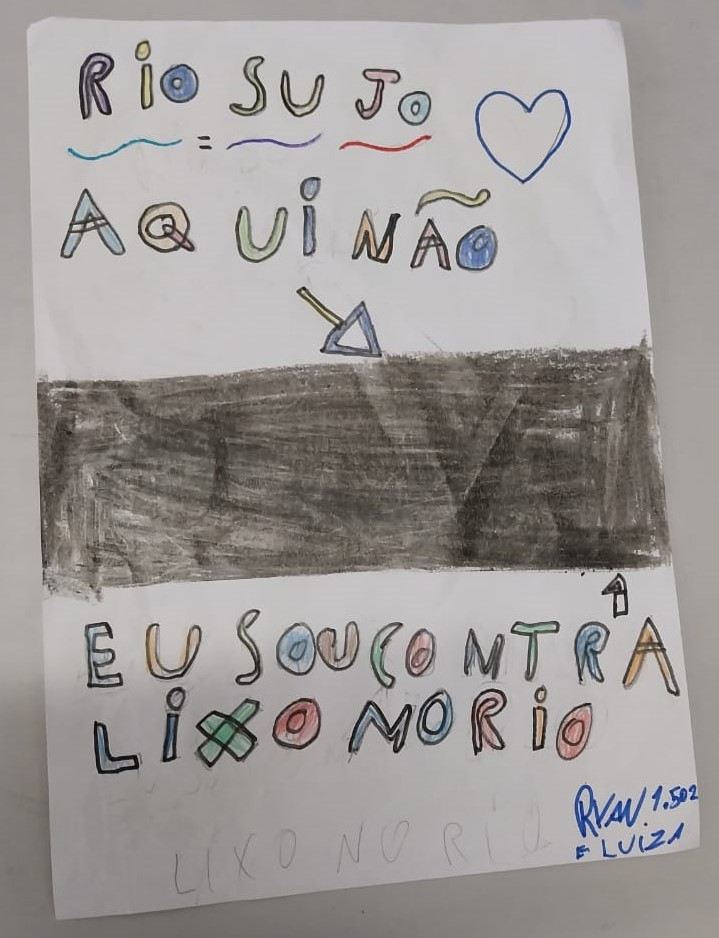 RIO SUJO
=
AQUI NÃO
EU SOU CONTRA
LIXO NO RIO
RYAN 1.502
E LUIZA
LIXO NO RIO